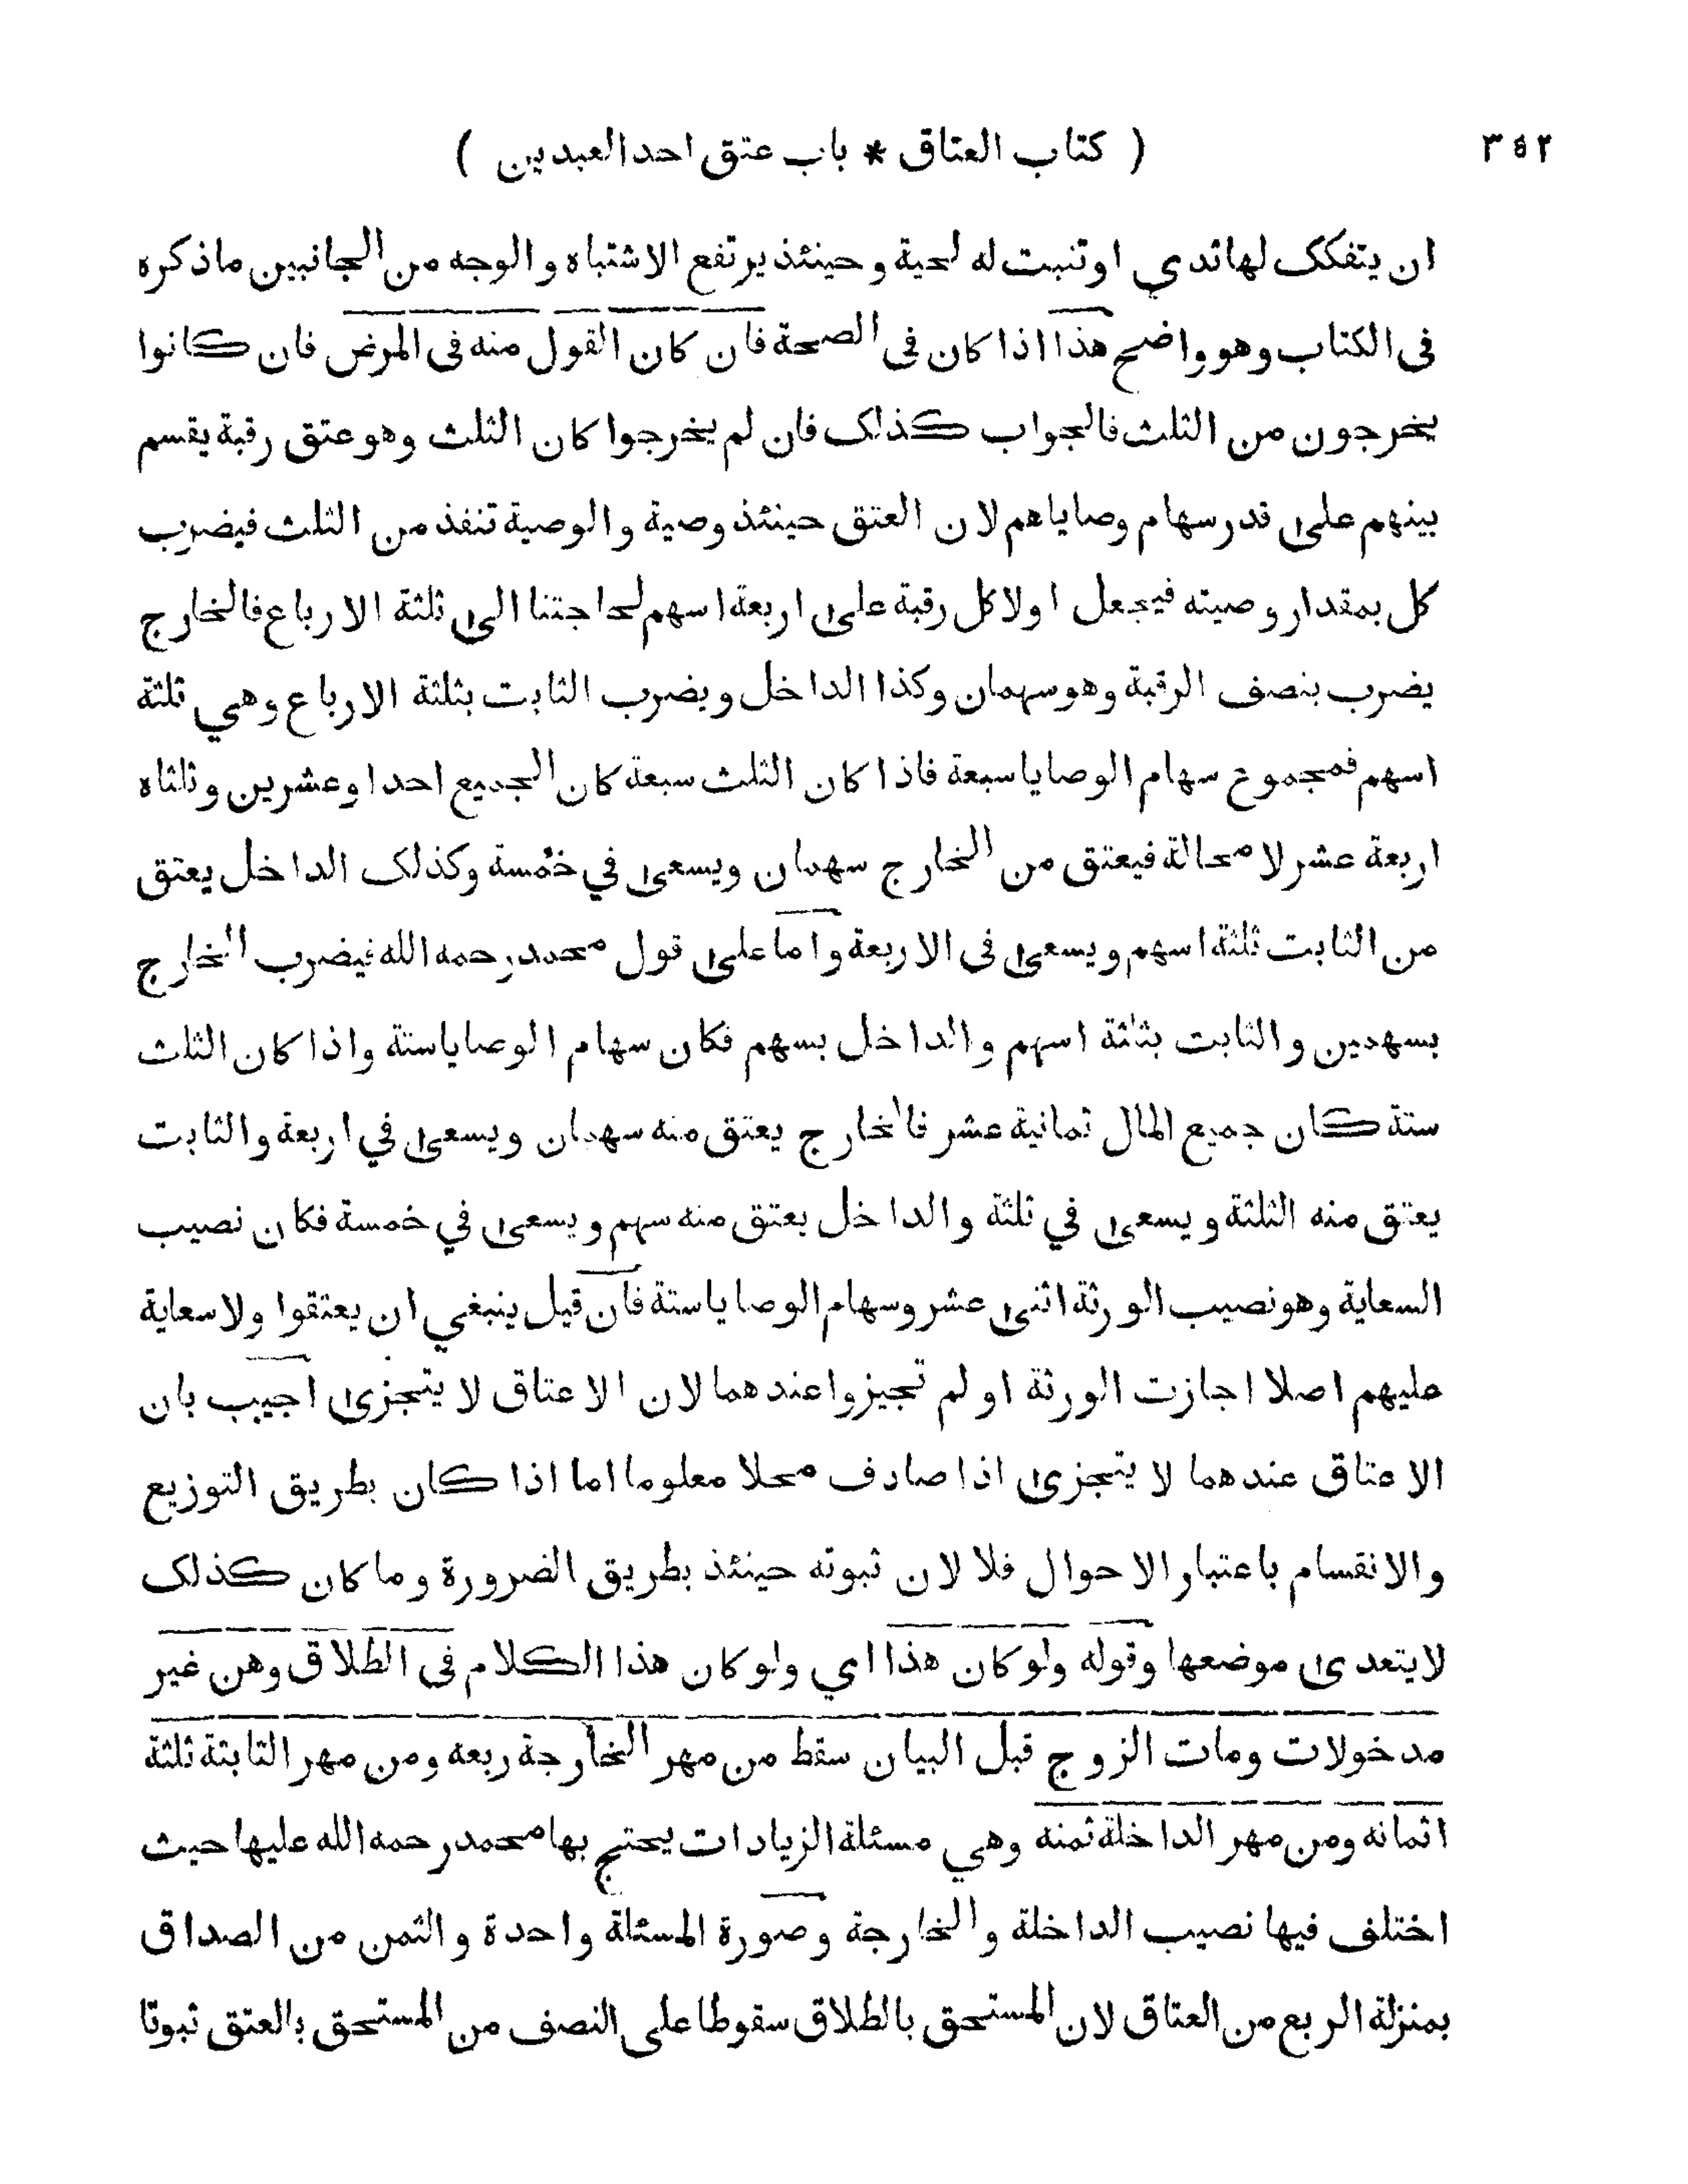 ٣٥٢
( كتاب العتاق * باب عتق احد العبدين )
ان يتفكك لها ثدي او تنبت له لحية و حينئذ يرتفع الاشتباه والوجه من الجانبين ما ذكره
فى الكتاب وهو واضح هذا اذا كان فى الصحة فان كان القول منه فى المرض فان كانوا
يخرجون من الثلث فالجواب كذلك فان لم يخرجوا كان الثلث وهو عتق رقبة يقسم
بينهم على قدر سهام وصاياهم لان العتق حينئذ وصية والوصية تنفذ من الثلث فيضرب
كل بمقدار وصيته فيجعل اولا كل رقبة على اربعة اسهم لحاجتنا الى ثلثة الارباع فالخارج
يضرب بنصف الرقبة وهو سهمان وكذا الداخل ويضرب الثابت بثلثة الارباع وهي ثلثة
اسهم فمجموع سهام الوصايا سبعة فاذا كان الثلث سبعة كان الجميع احدا وعشرين وثلثاه
اربعة عشر لا محالة فيعتق من الخارج سهمان ويسعى في خمسة وكذلك الداخل يعتق
من الثابت ثلثة اسهم ويسعى فى الاربعة واما على قول محمد رحمه الله فيضرب الخارج
بسهمين والثابت بثلثة اسهم والداخل بسهم فكان سهام الوصايا ستة واذا كان الثلث
ستة كان جميع المال ثمانية عشر فالخارج يعتق منه سهمان ويسعى في اربعة والثابت
يعتق منه الثلثة ويسعى في ثلثة والداخل يعتق منه سهم ويسعى في خمسة فكان نصيب
السعاية وهو نصيب الورثة اثنى عشر وسهام الوصايا ستة فان قيل ينبغي ان يعتقوا ولا سعاية
عليهم اصلا اجازت الورثة او لم تجيزوا عندهما لان الاعتاق لا يتجزى اجيب بان
الاعتاق عندهما لا يتجزى اذا صادف محلا معلوما اما اذا كان بطريق التوزيع
والانقسام باعتبار الاحوال فلا لان ثبوته حينئذ بطريق الضرورة وما كان كذلك
لا يتعدى موضعها وقوله ولو كان هذا اي ولو كان هذا الكلام فى الطلاق وهن غير
مدخولات ومات الزوج قبل البيان سقط من مهر الخارجة ربعه ومن مهر الثابتة ثلثة
اثمانه ومن مهر الداخلة ثمنه وهي مسئلة الزيادات يحتج بها محمد رحمه الله عليها حيث
اختلف فيها نصيب الداخلة والخارجة وصورة المسئلة واحدة والثمن من الصداق
بمنزلة الربع من العتاق لان المستحق بالطلاق سقوطا على النصف من المستحق بالعتق ثبوتا